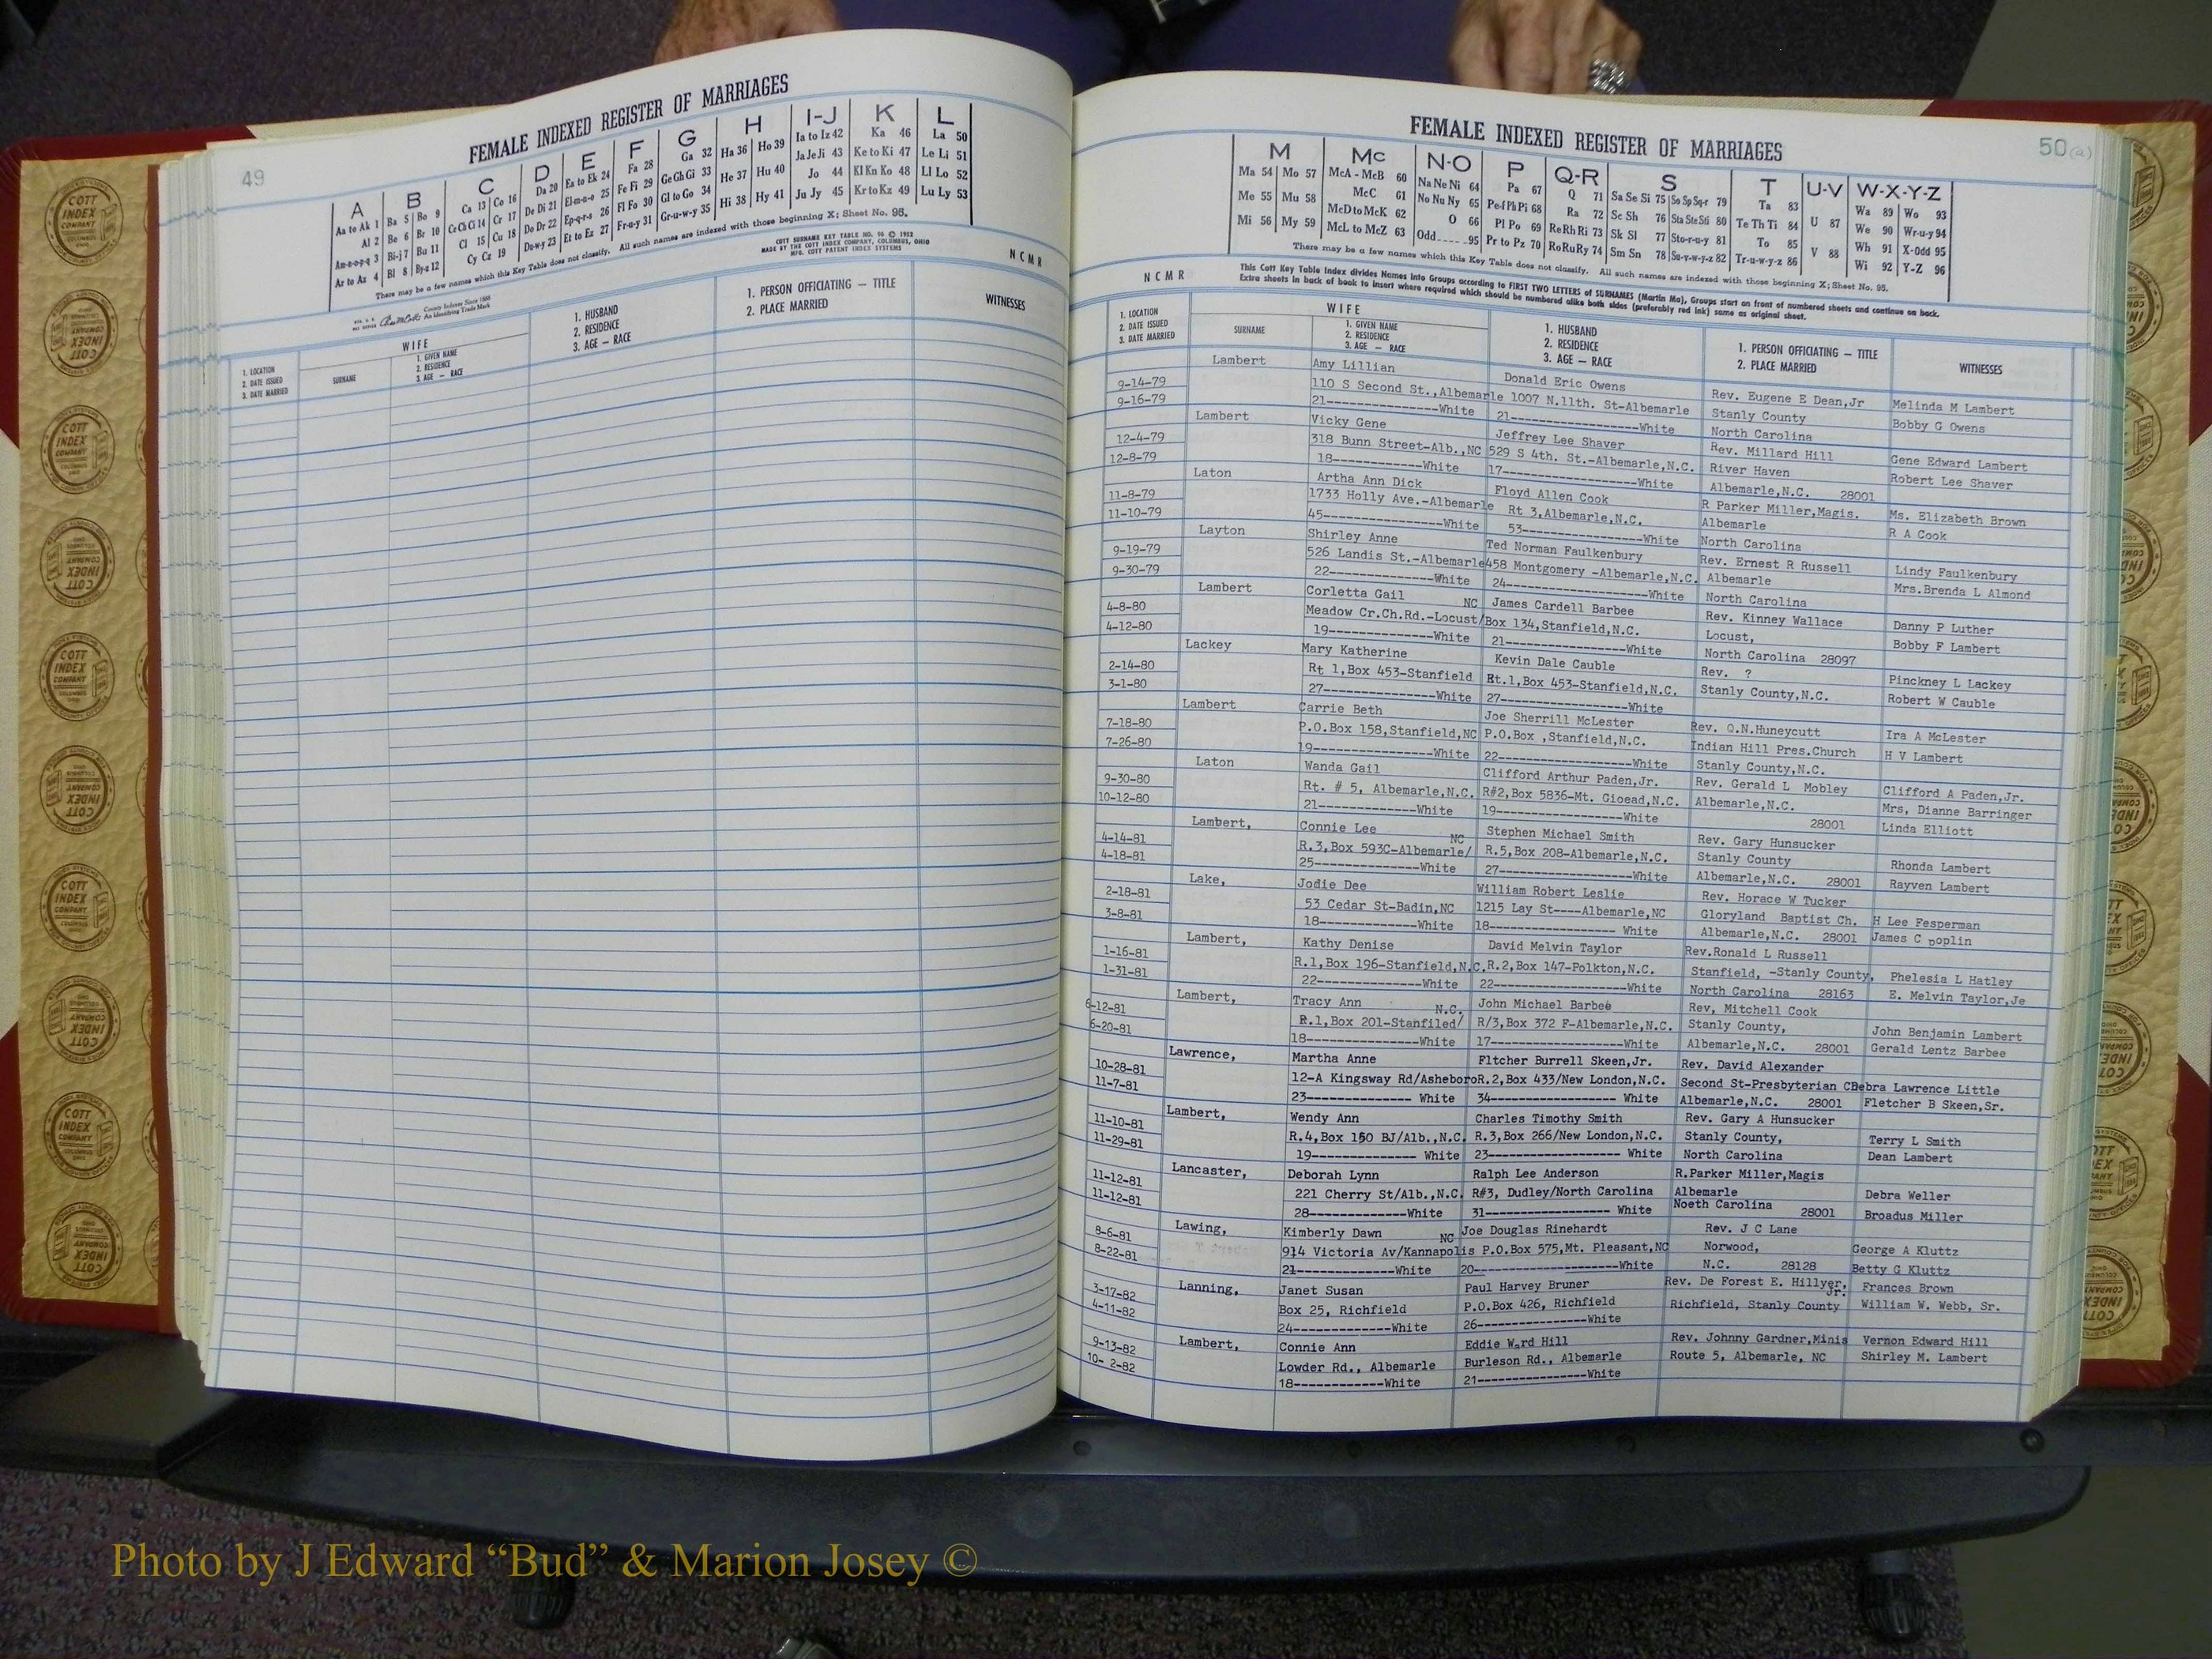 49
FEMALE INDEXED REGISTER OF MARRIAGES
A B C D E F G H I-J K L
Aa to Ak 1 Ba 5 Bo 9 Ca 13 Co 16 Da 20 Ea to Ek 24 Fa 28 Ga 32 Ha 36 Ho 39 Ia to Iz 42 Ka 46 La 50
Al 2 Be 6 Br 10 Ce Ch Ci 14 Cr 17 De Di 21 El-m-n-o 25 Fe Fi 29 Ge Gh Gi 33 He 37 Hu 40 Ja Je Ji 43 Ke to Ki 47 Le Li 51
Am-n-o-p-q 3 Bi-j 7 Bu 11 Cl 15 Cu 18 Do Dr 22 Ep-q-r-s 26 Fl Fo 30 Gl to Go 34 Hi 38 Hy 41 Jo 44 Kl Kn Ko 48 Ll Lo 52
Ar to Az 4 Bl 8 By-z 12 Cy Cz 19 Du-w-y 23 Et to Ez 27 Fr-u-y 31 Gr-u-w-y 35 Ju Jy 45 Kr to Kz 49 Lu Ly 53
There may be a few names which this Key Table does not classify. All such names are indexed with those beginning X; Sheet No. 95.
COTT SURNAME KEY TABLE NO. 96 © 1952
MADE BY THE COTT INDEX COMPANY, COLUMBUS, OHIO
MFG. COTT PATENT INDEX SYSTEMS
County Indexes Since 1888
An Identifying Trade Mark
NCMR
1. LOCATION
2. DATE ISSUED
3. DATE MARRIED
WIFE
SURNAME
1. GIVEN NAME
2. RESIDENCE
3. AGE — RACE
1. HUSBAND
2. RESIDENCE
3. AGE — RACE
1. PERSON OFFICIATING — TITLE
2. PLACE MARRIED
WITNESSES
50(a)
FEMALE INDEXED REGISTER OF MARRIAGES
M Mc N-O P Q-R S T U-V W-X-Y-Z
Ma 54 Mo 57 McA - McB 60 Na Ne Ni 64 Pa 67 Q 71 Sa Se Si 75 So Sp Sq-r 79 Ta 83 U 87 Wa 89 Wo 93
Me 55 Mu 58 McC 61 No Nu Ny 65 Pe-f Ph Pi 68 Ra 72 Sc Sh 76 Sta Ste Sti 80 Te Th Ti 84 We 90 Wr-u-y 94
Mi 56 My 59 McD to McK 62 O 66 Pl Po 69 Re Rh Ri 73 Sk Sl 77 Sto-r-u-y 81 To 85 V 88 Wh 91 X-Odd 95
McL to McZ 63 Odd.....95 Pr to Pz 70 Ro Ru Ry 74 Sm Sn 78 Su-v-w-y-z 82 Tr-u-w-y-z 86 Wi 92 Y-Z 96
There may be a few names which this Key Table does not classify. All such names are indexed with those beginning X; Sheet No. 95.
This Cott Key Table Index divides Names into Groups according to FIRST TWO LETTERS of SURNAMES (Martin Ma), Groups start on front of numbered sheets and continue on back.
Extra sheets in back of book to insert where required which should be numbered alike both sides (preferably red ink) same as original sheet.
NCMR
1. LOCATION
2. DATE ISSUED
3. DATE MARRIED
WIFE
SURNAME
1. GIVEN NAME
2. RESIDENCE
3. AGE — RACE
1. HUSBAND
2. RESIDENCE
3. AGE — RACE
1. PERSON OFFICIATING — TITLE
2. PLACE MARRIED
WITNESSES
Lambert Amy Lillian Donald Eric Owens Rev. Eugene E Dean,Jr Melinda M Lambert
9-14-79 110 S Second St.,Albemarle 1007 N.11th. St-Albemarle Stanly County Bobby G Owens
9-16-79 21---------------White 21------------------White North Carolina
Lambert Vicky Gene Jeffrey Lee Shaver Rev. Millard Hill Gene Edward Lambert
12-4-79 318 Bunn Street-Alb.,NC 529 S 4th. St.-Albemarle,N.C. River Haven Robert Lee Shaver
12-8-79 18-------------White 17------------------White Albemarle,N.C. 28001
Laton Artha Ann Dick Floyd Allen Cook R Parker Miller,Magis. Ms. Elizabeth Brown
11-8-79 1733 Holly Ave.-Albemarle Rt 3,Albemarle,N.C. Albemarle R A Cook
11-10-79 45----------------White 53------------------White North Carolina
Layton Shirley Anne Ted Norman Faulkenbury Rev. Ernest R Russell Lindy Faulkenbury
9-19-79 526 Landis St.-Albemarle 458 Montgomery -Albemarle,N.C. Albemarle Mrs.Brenda L Almond
9-30-79 22--------------White 24------------------White North Carolina
Lambert Corletta Gail James Cardell Barbee Rev. Kinney Wallace Danny P Luther
4-8-80 Meadow Cr.Ch.Rd.-Locust/NC Box 134,Stanfield,N.C. Locust, Bobby F Lambert
4-12-80 19---------------White 21------------------White North Carolina 28097
Lackey Mary Katherine Kevin Dale Cauble Rev. ? Pinckney L Lackey
2-14-80 Rt 1,Box 453-Stanfield Rt.1,Box 453-Stanfield,N.C. Stanly County,N.C. Robert W Cauble
3-1-80 27----------------White 27------------------White
Lambert Carrie Beth Joe Sherrill McLester Rev. Q.N.Huneycutt Ira A McLester
7-18-80 P.O.Box 158,Stanfield,NC P.O.Box ,Stanfield,N.C. Indian Hill Pres.Church H V Lambert
7-26-80 19-----------------White 22------------------White Stanly County,N.C.
Laton Wanda Gail Clifford Arthur Paden,Jr. Rev. Gerald L Mobley Clifford A Paden,Jr.
9-30-80 Rt. # 5, Albemarle,N.C. R#2,Box 5836-Mt. Gioead,N.C. Albemarle,N.C. Mrs, Dianne Barringer
10-12-80 21---------------White 19------------------White 28001 Linda Elliott
Lambert, Connie Lee Stephen Michael Smith Rev. Gary Hunsucker Rhonda Lambert
4-14-81 R.3,Box 593C-Albemarle/NC R.5,Box 208-Albemarle,N.C. Stanly County Rayven Lambert
4-18-81 25---------------White 27------------------White Albemarle,N.C. 28001
Lake, Jodie Dee William Robert Leslie Rev. Horace W Tucker H Lee Fesperman
2-18-81 53 Cedar St-Badin,NC 1215 Lay St----Albemarle,NC Gloryland Baptist Ch. James C Doplin
3-8-81 18---------------White 18----------------- White Albemarle,N.C. 28001
Lambert, Kathy Denise David Melvin Taylor Rev.Ronald L Russell Phelesia L Hatley
1-16-81 R.1,Box 196-Stanfield,N.C. R.2,Box 147-Polkton,N.C. Stanfield, -Stanly County, E. Melvin Taylor,Je
1-31-81 22---------------White 22------------------White North Carolina 28163
Lambert, Tracy Ann John Michael Barbee Rev, Mitchell Cook John Benjamin Lambert
6-12-81 R.1,Box 201-Stanfiled/N.C. R/3,Box 372 F-Albemarle,N.C. Stanly County, Gerald Lentz Barbee
6-20-81 18----------------White 17------------------White Albemarle,N.C. 28001
Lawrence, Martha Anne Fltcher Burrell Skeen,Jr. Rev. David Alexander Debra Lawrence Little
10-28-81 12-A Kingsway Rd/Asheboro R.2,Box 433/New London,N.C. Second St-Presbyterian C Fletcher B Skeen,Sr.
11-7-81 23-------------- White 34----------------- White Albemarle,N.C. 28001
Lambert, Wendy Ann Charles Timothy Smith Rev. Gary A Hunsucker Terry L Smith
11-10-81 R.4,Box 150 BJ/Alb.,N.C. R.3,Box 266/New London,N.C. Stanly County, Dean Lambert
11-29-81 19-------------- White 23----------------- White North Carolina
Lancaster, Deborah Lynn Ralph Lee Anderson R.Parker Miller,Magis Debra Weller
11-12-81 221 Cherry St/Alb.,N.C. R#3, Dudley/North Carolina Albemarle Broadus Miller
11-12-81 28---------------White 31----------------- White Noeth Carolina 28001
Lawing, Kimberly Dawn Joe Douglas Rinehardt Rev. J C Lane George A Kluttz
8-6-81 914 Victoria Av/Kannapolis NC P.O.Box 575,Mt. Pleasant,NC Norwood, Betty G Kluttz
8-22-81 21---------------White 20------------------White N.C. 28128
Lanning, Janet Susan Paul Harvey Bruner Rev. De Forest E. Hillyer, Jr. Frances Brown
3-17-82 Box 25, Richfield P.O.Box 426, Richfield Richfield, Stanly County William W. Webb, Sr.
4-11-82 24-------------White 26---------------White
Lambert, Connie Ann Eddie Ward Hill Rev. Johnny Gardner,Minis Vernon Edward Hill
9-13-82 Lowder Rd., Albemarle Burleson Rd., Albemarle Route 5, Albemarle, NC Shirley M. Lambert
10- 2-82 18------------White 21---------------White
COTT INDEX COMPANY COLUMBUS OHIO
Photo by J Edward “Bud” & Marion Josey ©